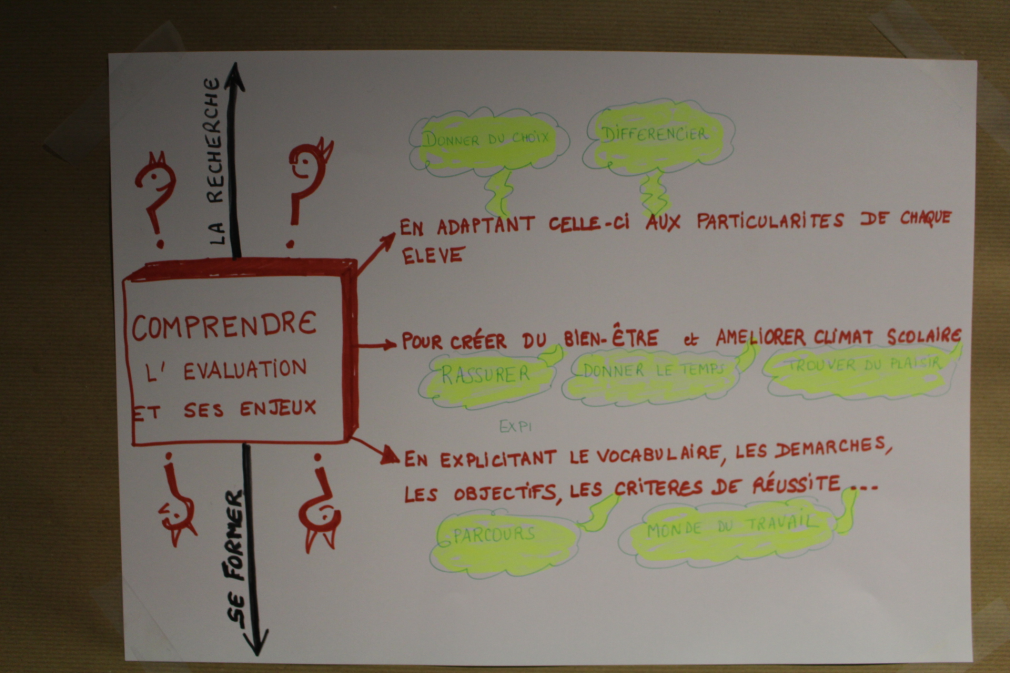 LA RECHERCHE
DONNER DU CHOIX
DIFFERENCIER
EN ADAPTANT CELLE-CI AUX PARTICULARITES DE CHAQUE
ELEVE
COMPRENDRE
L' EVALUATION
ET SES ENJEUX
POUR CRÉER DU BIEN-ÊTRE et AMELIORER CLIMAT SCOLAIRE
RASSURER
DONNER LE TEMPS
TROUVER DU PLAISIR
EXPI
EN EXPLICITANT LE VOCABULAIRE, LES DEMARCHES,
LES OBJECTIFS, LES CRITERES DE RÉUSSITE...
PARCOURS
MONDE DU TRAVAIL
SE FORMER